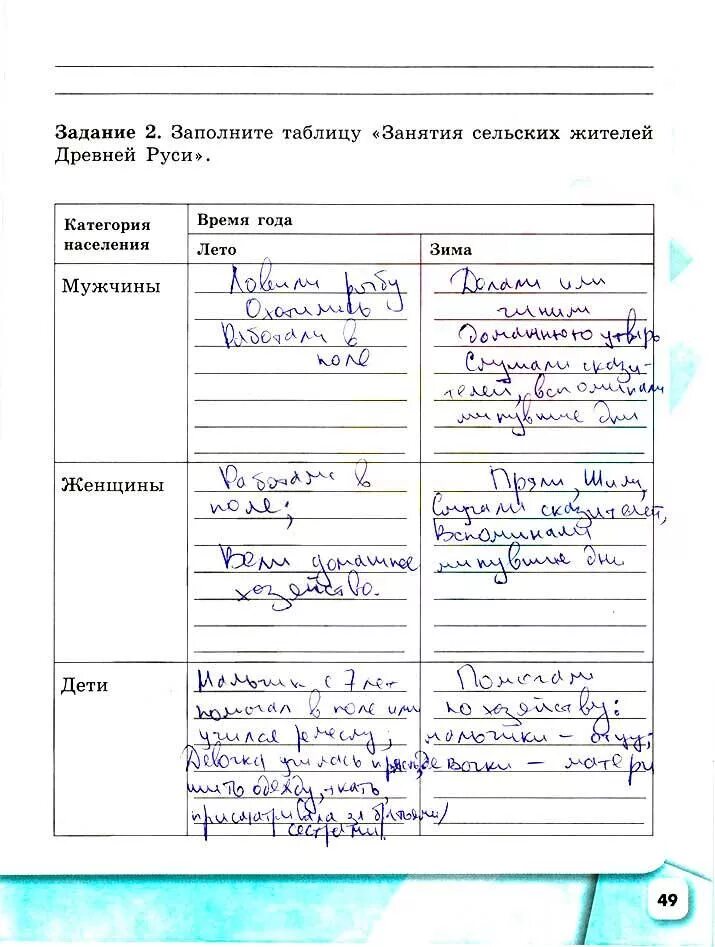 Задание 2. Заполните таблицу «Занятия сельских жителей
Древней Руси».
Категория
населения
Время года
Лето
Зима
Мужчины
Ловили рыбу
Охотились
Работали в
поле
Делали или
чинили
домашнюю утварь
Слушали скази-
телей, вспоминали
минувшие дни
Женщины
Работали в
поле;
Вели домашнее
хозяйство.
Пряли, Шили,
Слушали сказителей,
Вспоминали
минувшие дни
Дети
Мальчик с 7 лет
помогал в поле или
учился ремеслу;
Девочка училась прясть,
шить одежду, ткать,
присматривала за братьями/
сестрами
Помогали
по хозяйству:
мальчики – отцу;
девочки – матери
49